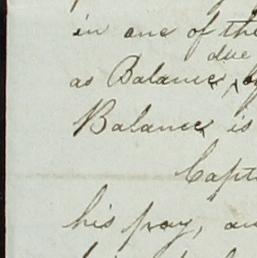 in one of the
due
as Balance,
Balance is
Capt
his pay, an